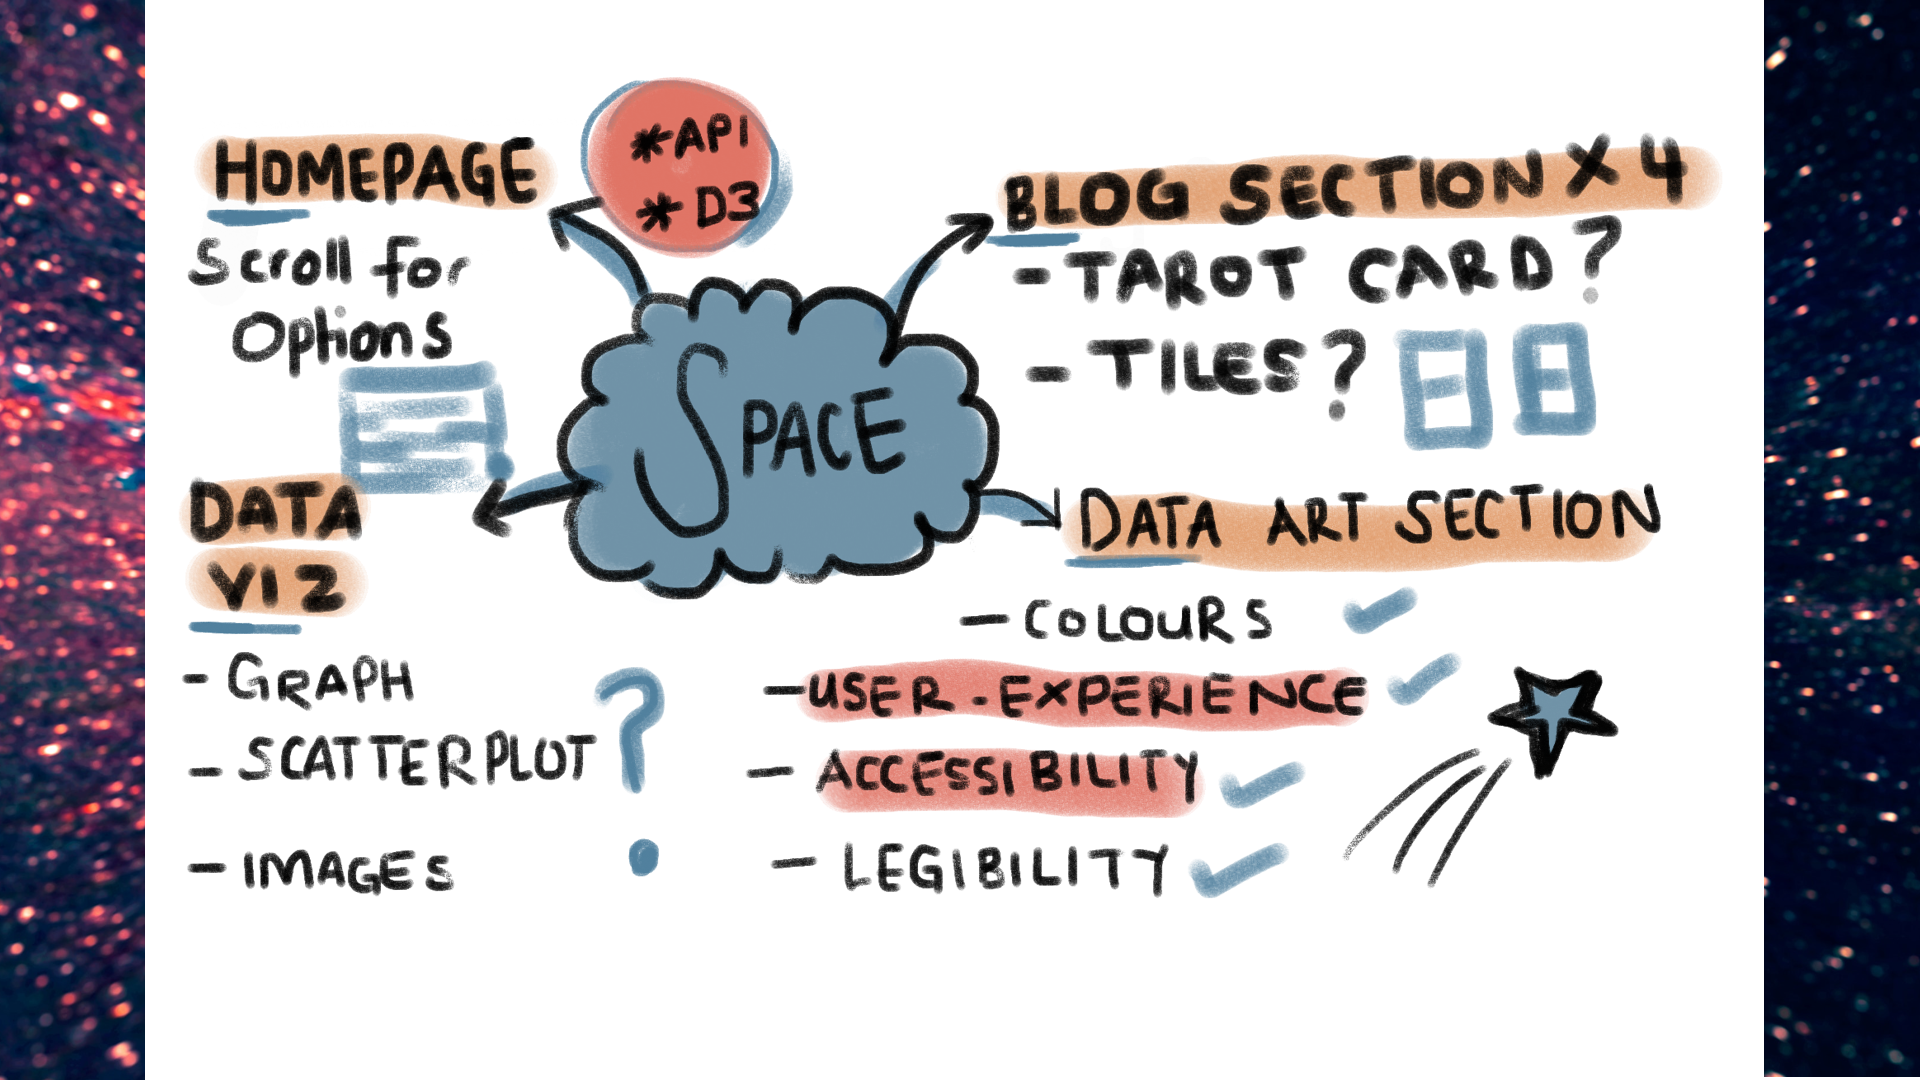 HOMEPAGE
Scroll for
Options
*API
* D3
SPACE
BLOG SECTION X 4
- TAROT CARD?
- TILES?
DATA
VIZ
- GRAPH
- SCATTERPLOT
- IMAGES
?
DATA ART SECTION
- COLOURS
- USER-EXPERIENCE
- ACCESSIBILITY
- LEGIBILITY